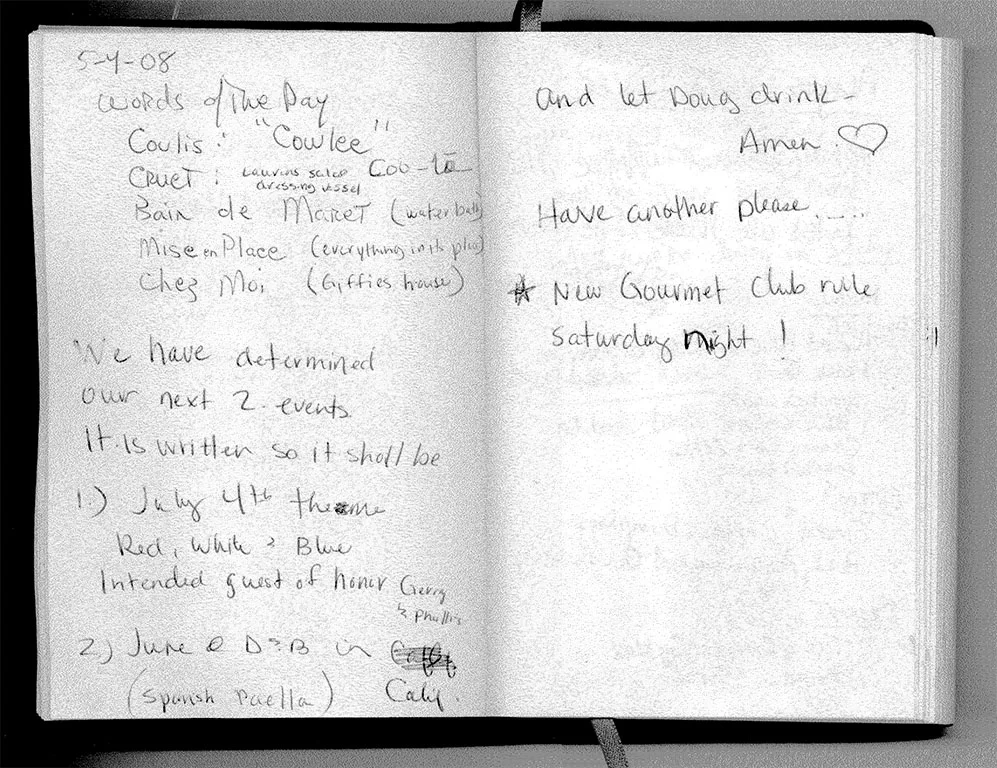 5-4-08
Words of The Day
Coulis : "Cowlee"
CRUET : Laurins salad Coo-lē
dressing vessel
Bain de Maret (water bath)
Mise en Place (everything in its place)
Chez Moi (Giffies house)
We have determined
our next 2 events
It is written so it shall be
1.) July 4th theme
Red, White & Blue
Intended guest of honor Gerry
& Phyllis
2) June @ D&B in
(Spanish Paella) Caly.
and let Doug drink -
Amen. ♡
Have another please.....
* New Gourmet Club rule
Saturday night !